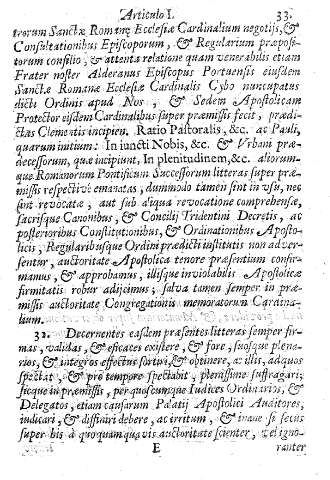 Articulo I. 33.
trorum Sanctæ Romanę Ecclesiæ Cardinalium negotijs, &
Consultationibus Episcoporum, & Regularium præposi-
torum consilio, & attenta relatione quam venerabilis etiam
Frater noster Alderanus Episcopus Portuensis eiusdem
Sanctæ Romanæ Ecclesiæ Cardinalis Cybo nuncupatus
dicti Ordinis apud Nos, & Sedem Apostolicam
Protector eisdem Cardinalibus super præmissis fecit, prædi-
ctas Clementis incipien. Ratio Pastoralis, &c. ac Pauli,
quarum initium: In iuncti Nobis, &c. & Vrbani præ-
decessorum, quæ incipiunt, In plenitudinem, &c. aliorum-
que Romanorum Pontificum Successorum litteras super præ-
missis respectivè emanatas, dummodo tamen sint in vsu, nec
sint revocatæ, aut sub aliqua revocatione comprehensæ,
sacrisque Canonibus, & Concilij Tridentini Decretis, ac
posterioribus Constitutionibus, & Ordinationibus Aposto-
licis, Regularibusque Ordini prædicti institutis non adver-
sentur, auctoritate Apostolica tenore præsentium confir-
mamus, & approbamus, illisque inviolabilis Apostolicæ
firmitatis robur adijcimus; salva tamen semper in præ-
missis auctoritate Congregationis memoratorum Cardina-
lium.
32. Decernentes easdem præsentes litteras semper fir-
mas, validas, & efficaces existere, & fore, suosque plena-
rios, & integros effectus sortiri, & obtinere, ac illis, ad quos
spectat, & pro tempore spectabit, plenissime suffragari;
sicque in præmissis, per quoscumque Iudices Ordinarios, &
Delegatos, etiam causarum Palatij Apostolici Auditores,
iudicari, & diffiniri debere, ac irritum, & inane si secùs
super his à quoquam quavis auctoritate scienter, vel igno-
E ranter